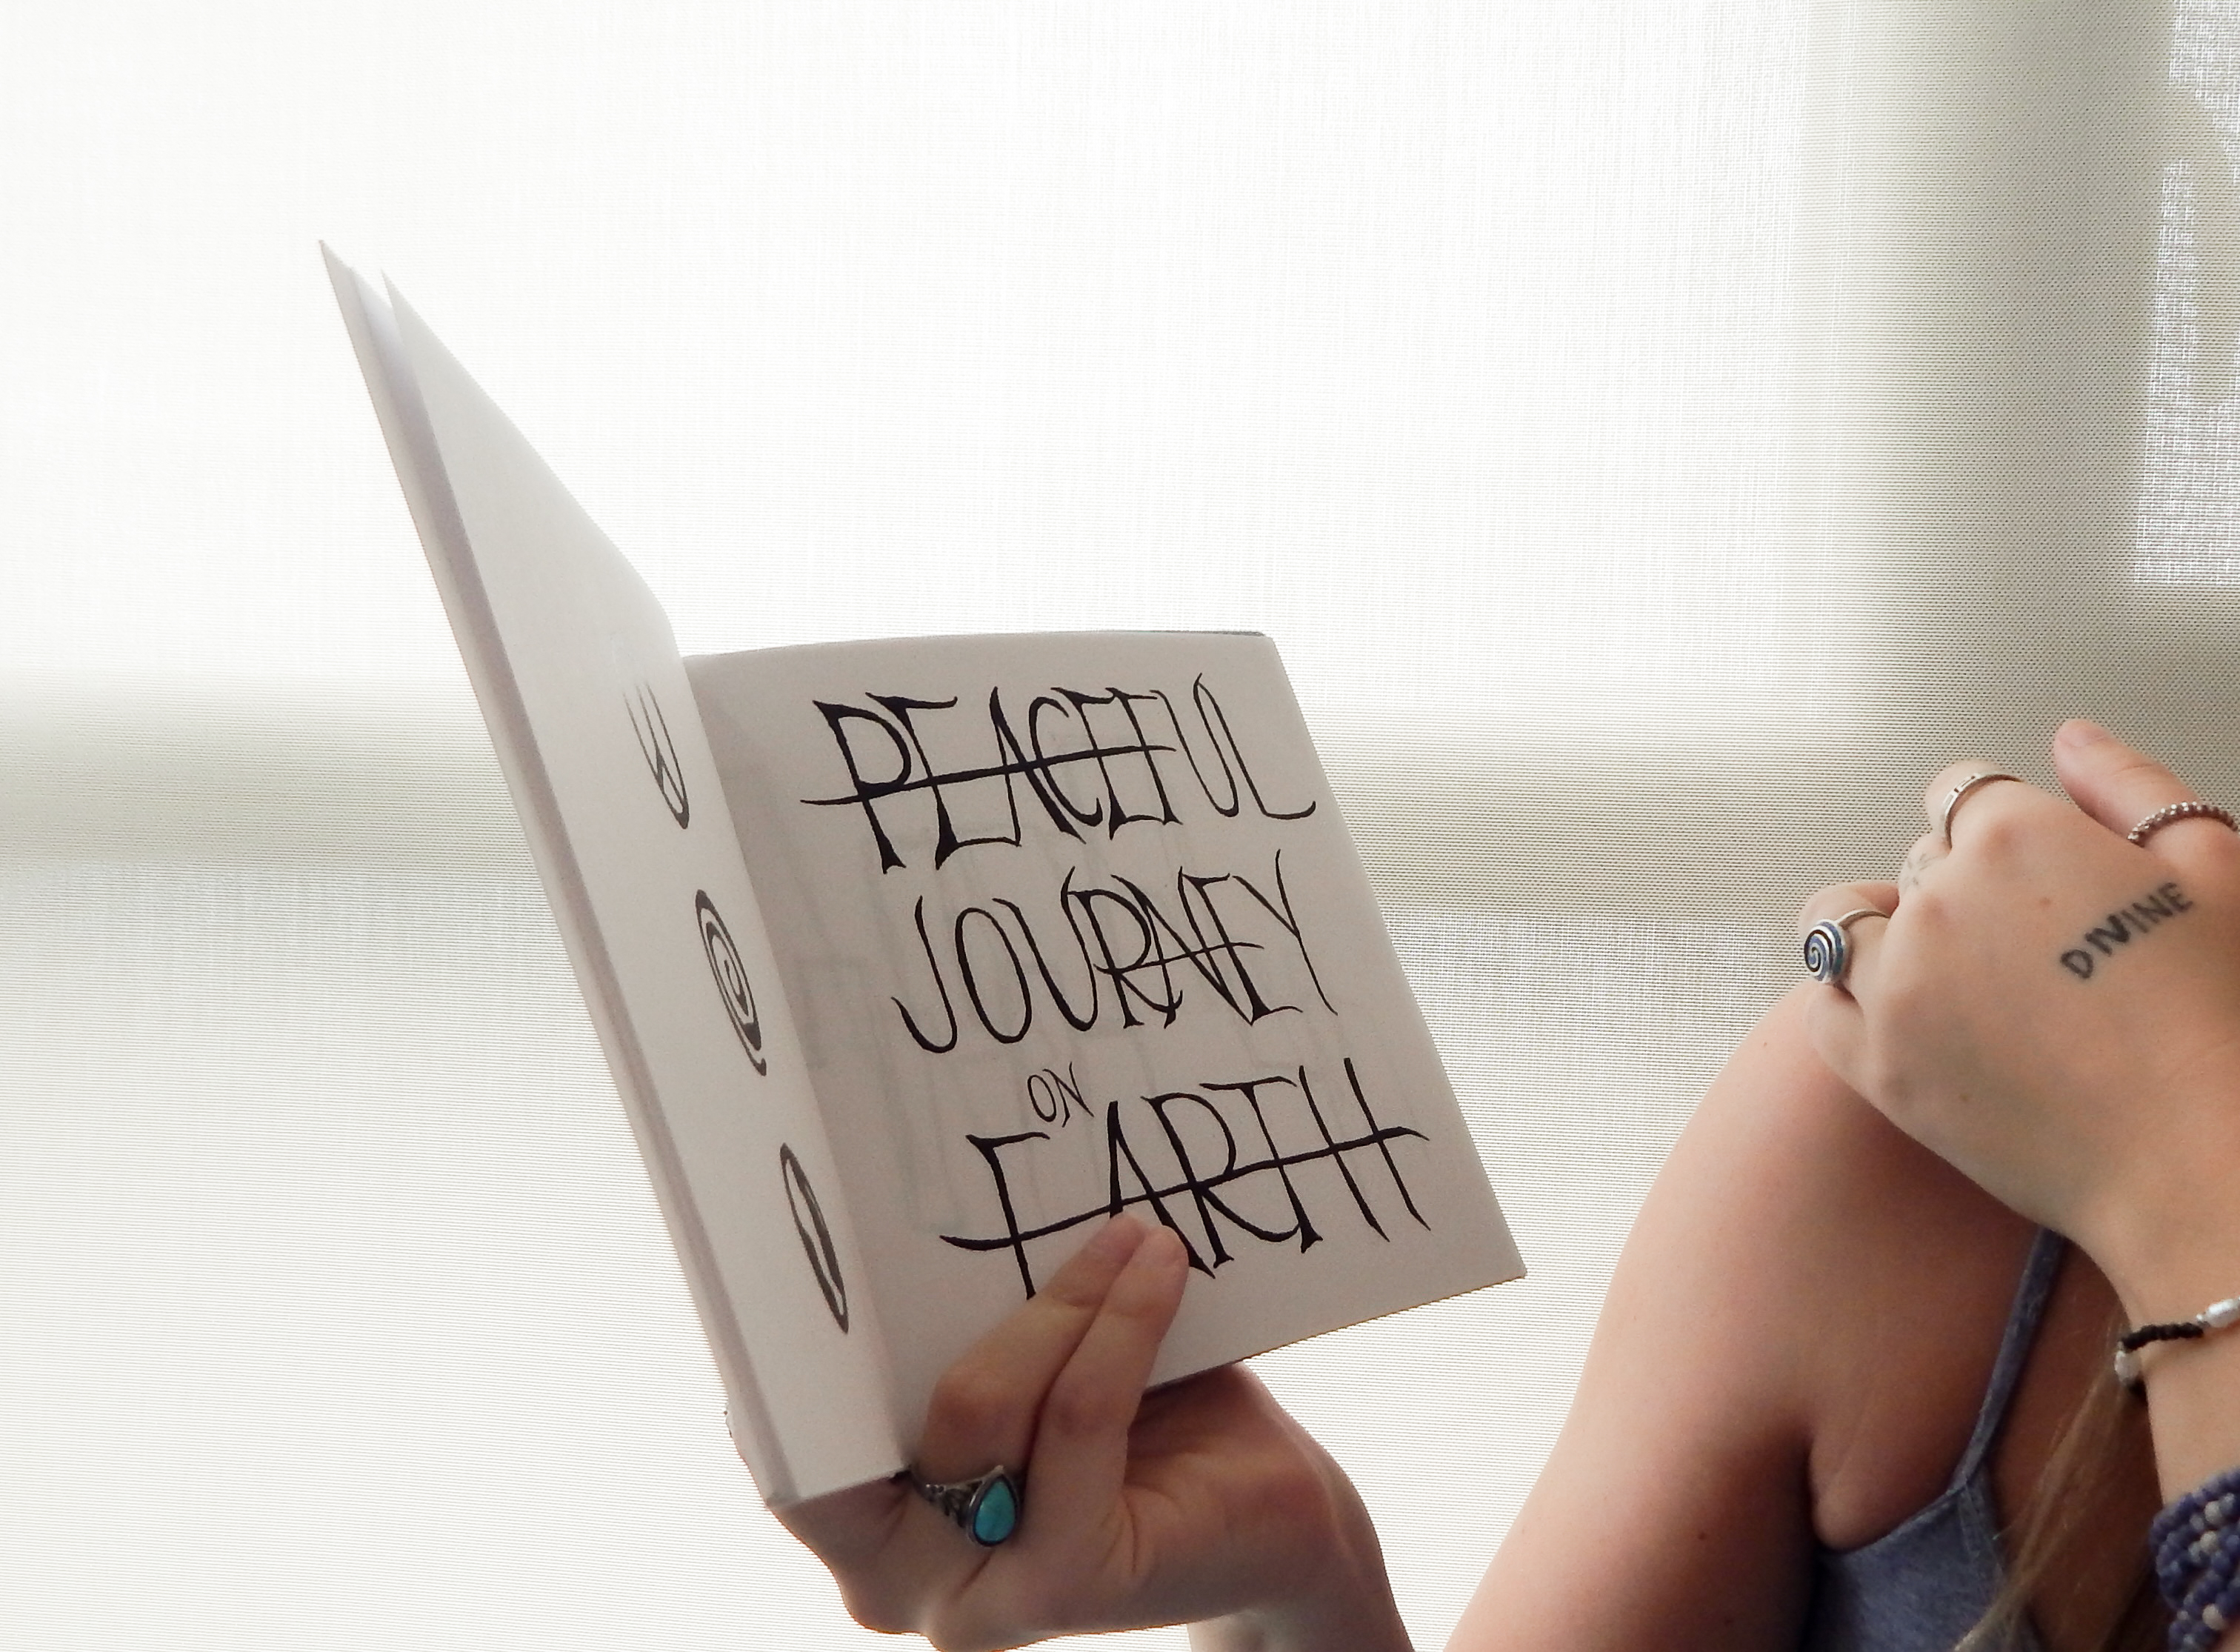 PEACEFUL
JOURNEY
ON
EARTH
DIVINE